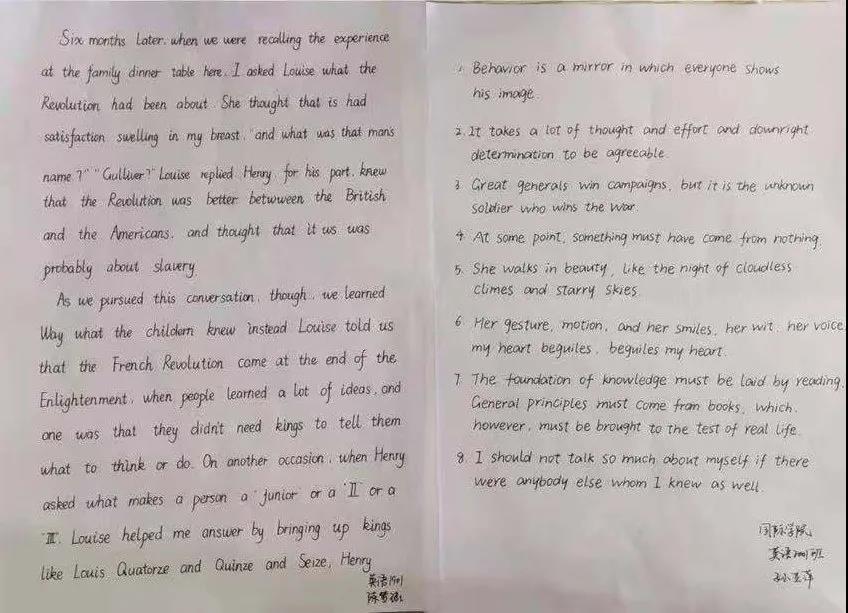 Six months later. when we were recalling the experience
at the family dinner table here. I asked Louise what the
Revolution had been about. She thought that is had
satisfaction swelling in my breast. "and what was that mans
name?" "Gulliver?" Louise replied. Henry, for his part, knew
that the Revolution was better betwween the British
and the Americans, and thought that it us was
probably about slavery
As we pursued this conversation, though, we learned
Way what the childern knew instead Louise told us
that the French Revolution came at the end of the
Enlightenment, when people learned a lot of ideas, and
one was that they didn't need kings to tell them
what to think or do. On another occasion, when Henry
asked what makes a person a "junior" or a "II" or a
"III". Louise helped me answer by bringing up kings
like Louis Quatorze and Quinze and Seize, Henry
英语1901
陈梦
1. Behavior is a mirror in which everyone shows
his image.
2. It takes a lot of thought and effort and downright
determination to be agreeable.
3 Great generals win campaigns, but it is the unknown
soldier who wins the war.
4 At some point, something must have come from nothing
5. She walks in beauty, like the night of cloudless
climes and starry skies
6 Her gesture, motion, and her smiles, her wit, her voice
my heart beguiles, beguiles my heart.
7. The foundation of knowledge must be laid by reading.
General principles must come from books, which,
however, must be brought to the test of real life.
8. I should not talk so much about myself if there
were anybody else whom I knew as well.
国际学院
英语1901班
孙玉萍